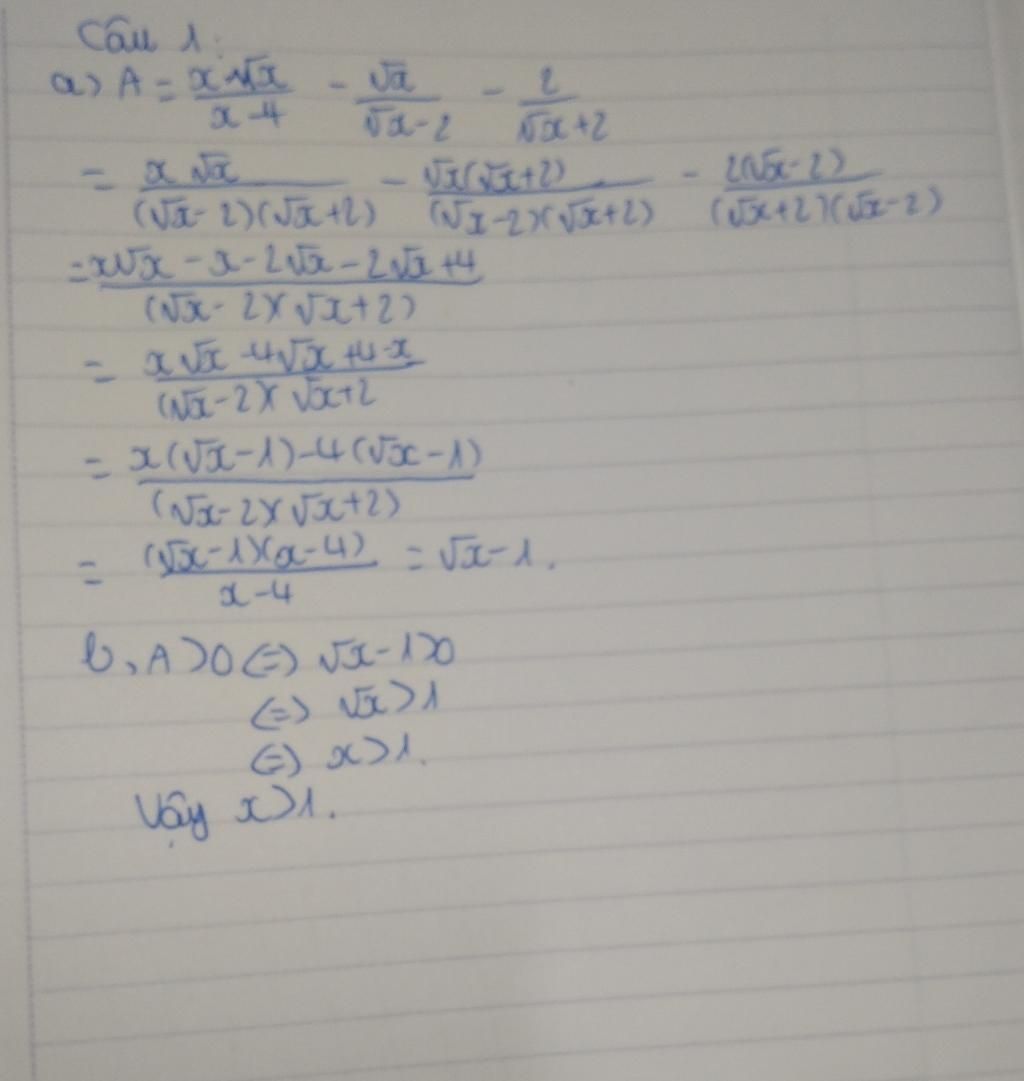 Câu 1:
a) A = x√x / (x-4) - √x / (√x-2) - 2 / (√x+2)
= x√x / (√x-2)(√x+2) - √x(√x+2) / (√x-2)(√x+2) - 2(√x-2) / (√x+2)(√x-2)
= x√x - x - 2√x - 2√x + 4 / (√x-2)(√x+2)
= x√x - 4√x + 4 - x / (√x-2)(√x+2
= x(√x-1) - 4(√x-1) / (√x-2)(√x+2)
= (√x-1)(x-4) / x-4 = √x-1.
b, A>0 (=) √x-1>0
(=) √x>1
(=) x>1.
Vậy x>1.